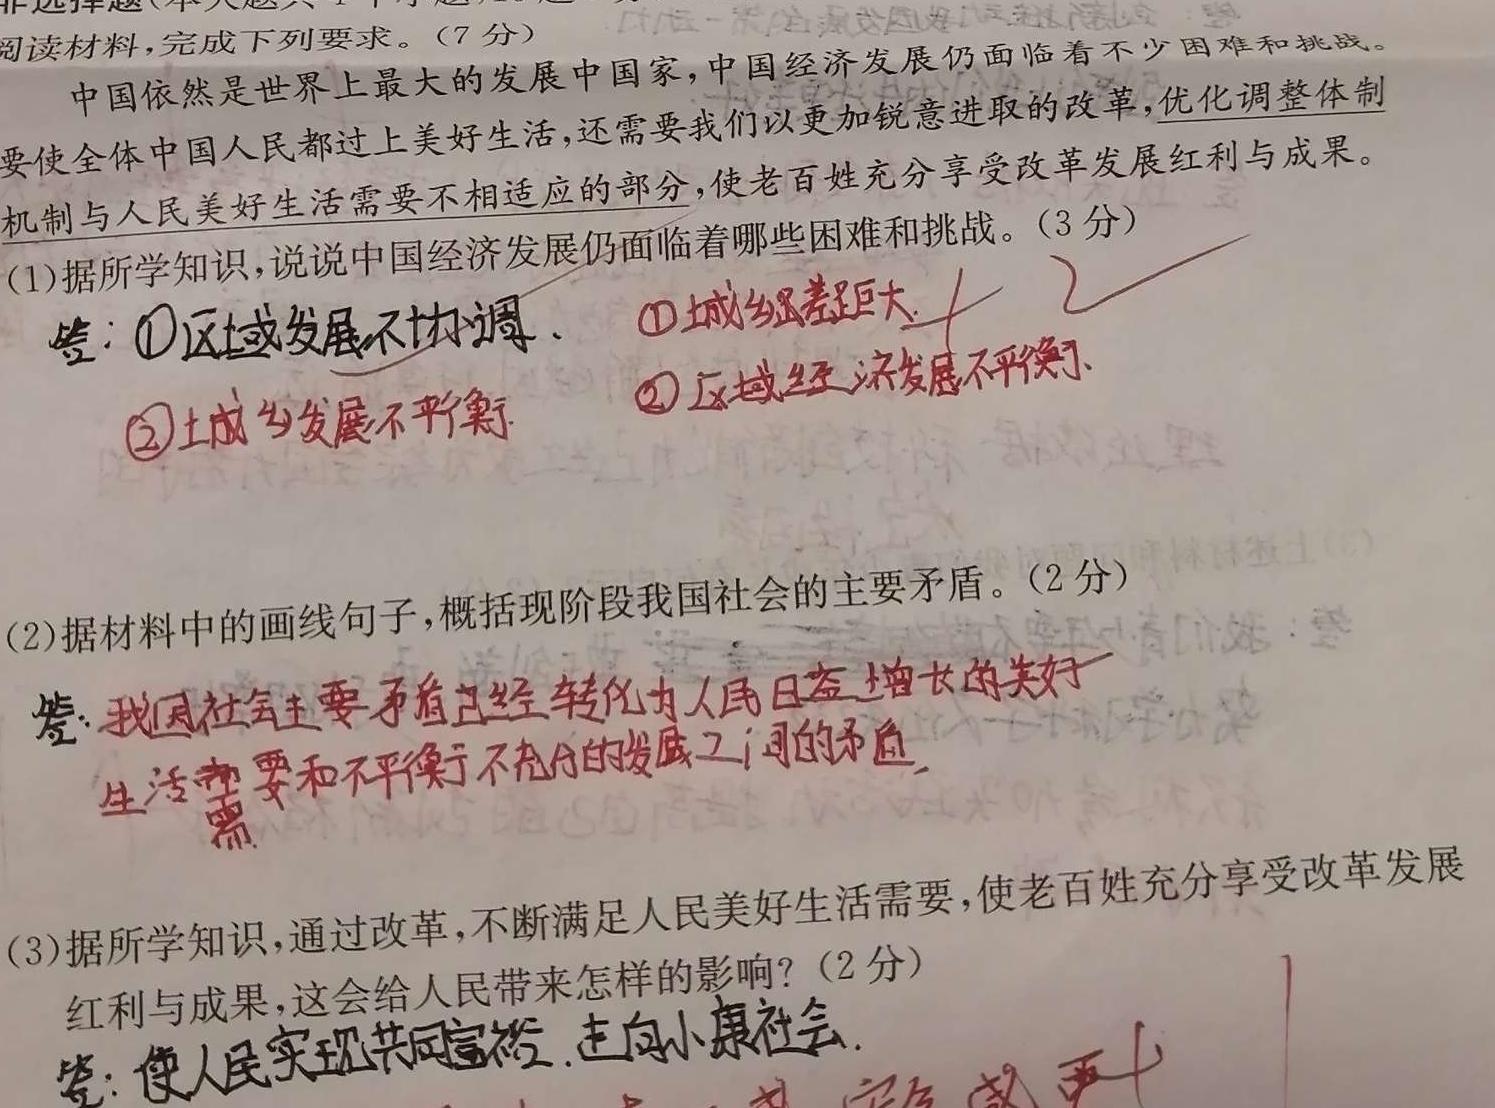 阅读材料,完成下列要求。(7分)
中国依然是世界上最大的发展中国家,中国经济发展仍面临着不少困难和挑战。
要使全体中国人民都过上美好生活,还需要我们以更加锐意进取的改革,优化调整体制
机制与人民美好生活需要不相适应的部分,使老百姓充分享受改革发展红利与成果。
(1)据所学知识,说说中国经济发展仍面临着哪些困难和挑战。(3分)
答:①区域发展不协调.
①城乡差距巨大.
②区域经济发展不平衡.
②城乡发展不平衡.
(2)据材料中的画线句子,概括现阶段我国社会的主要矛盾。(2分)
答:我国社会主要矛盾已经转化为人民日益增长的美好
生活需要和不平衡不充分的发展之间的矛盾.
需
(3)据所学知识,通过改革,不断满足人民美好生活需要,使老百姓充分享受改革发展
红利与成果,这会给人民带来怎样的影响?(2分)
答:使人民实现共同富裕.走向小康社会.